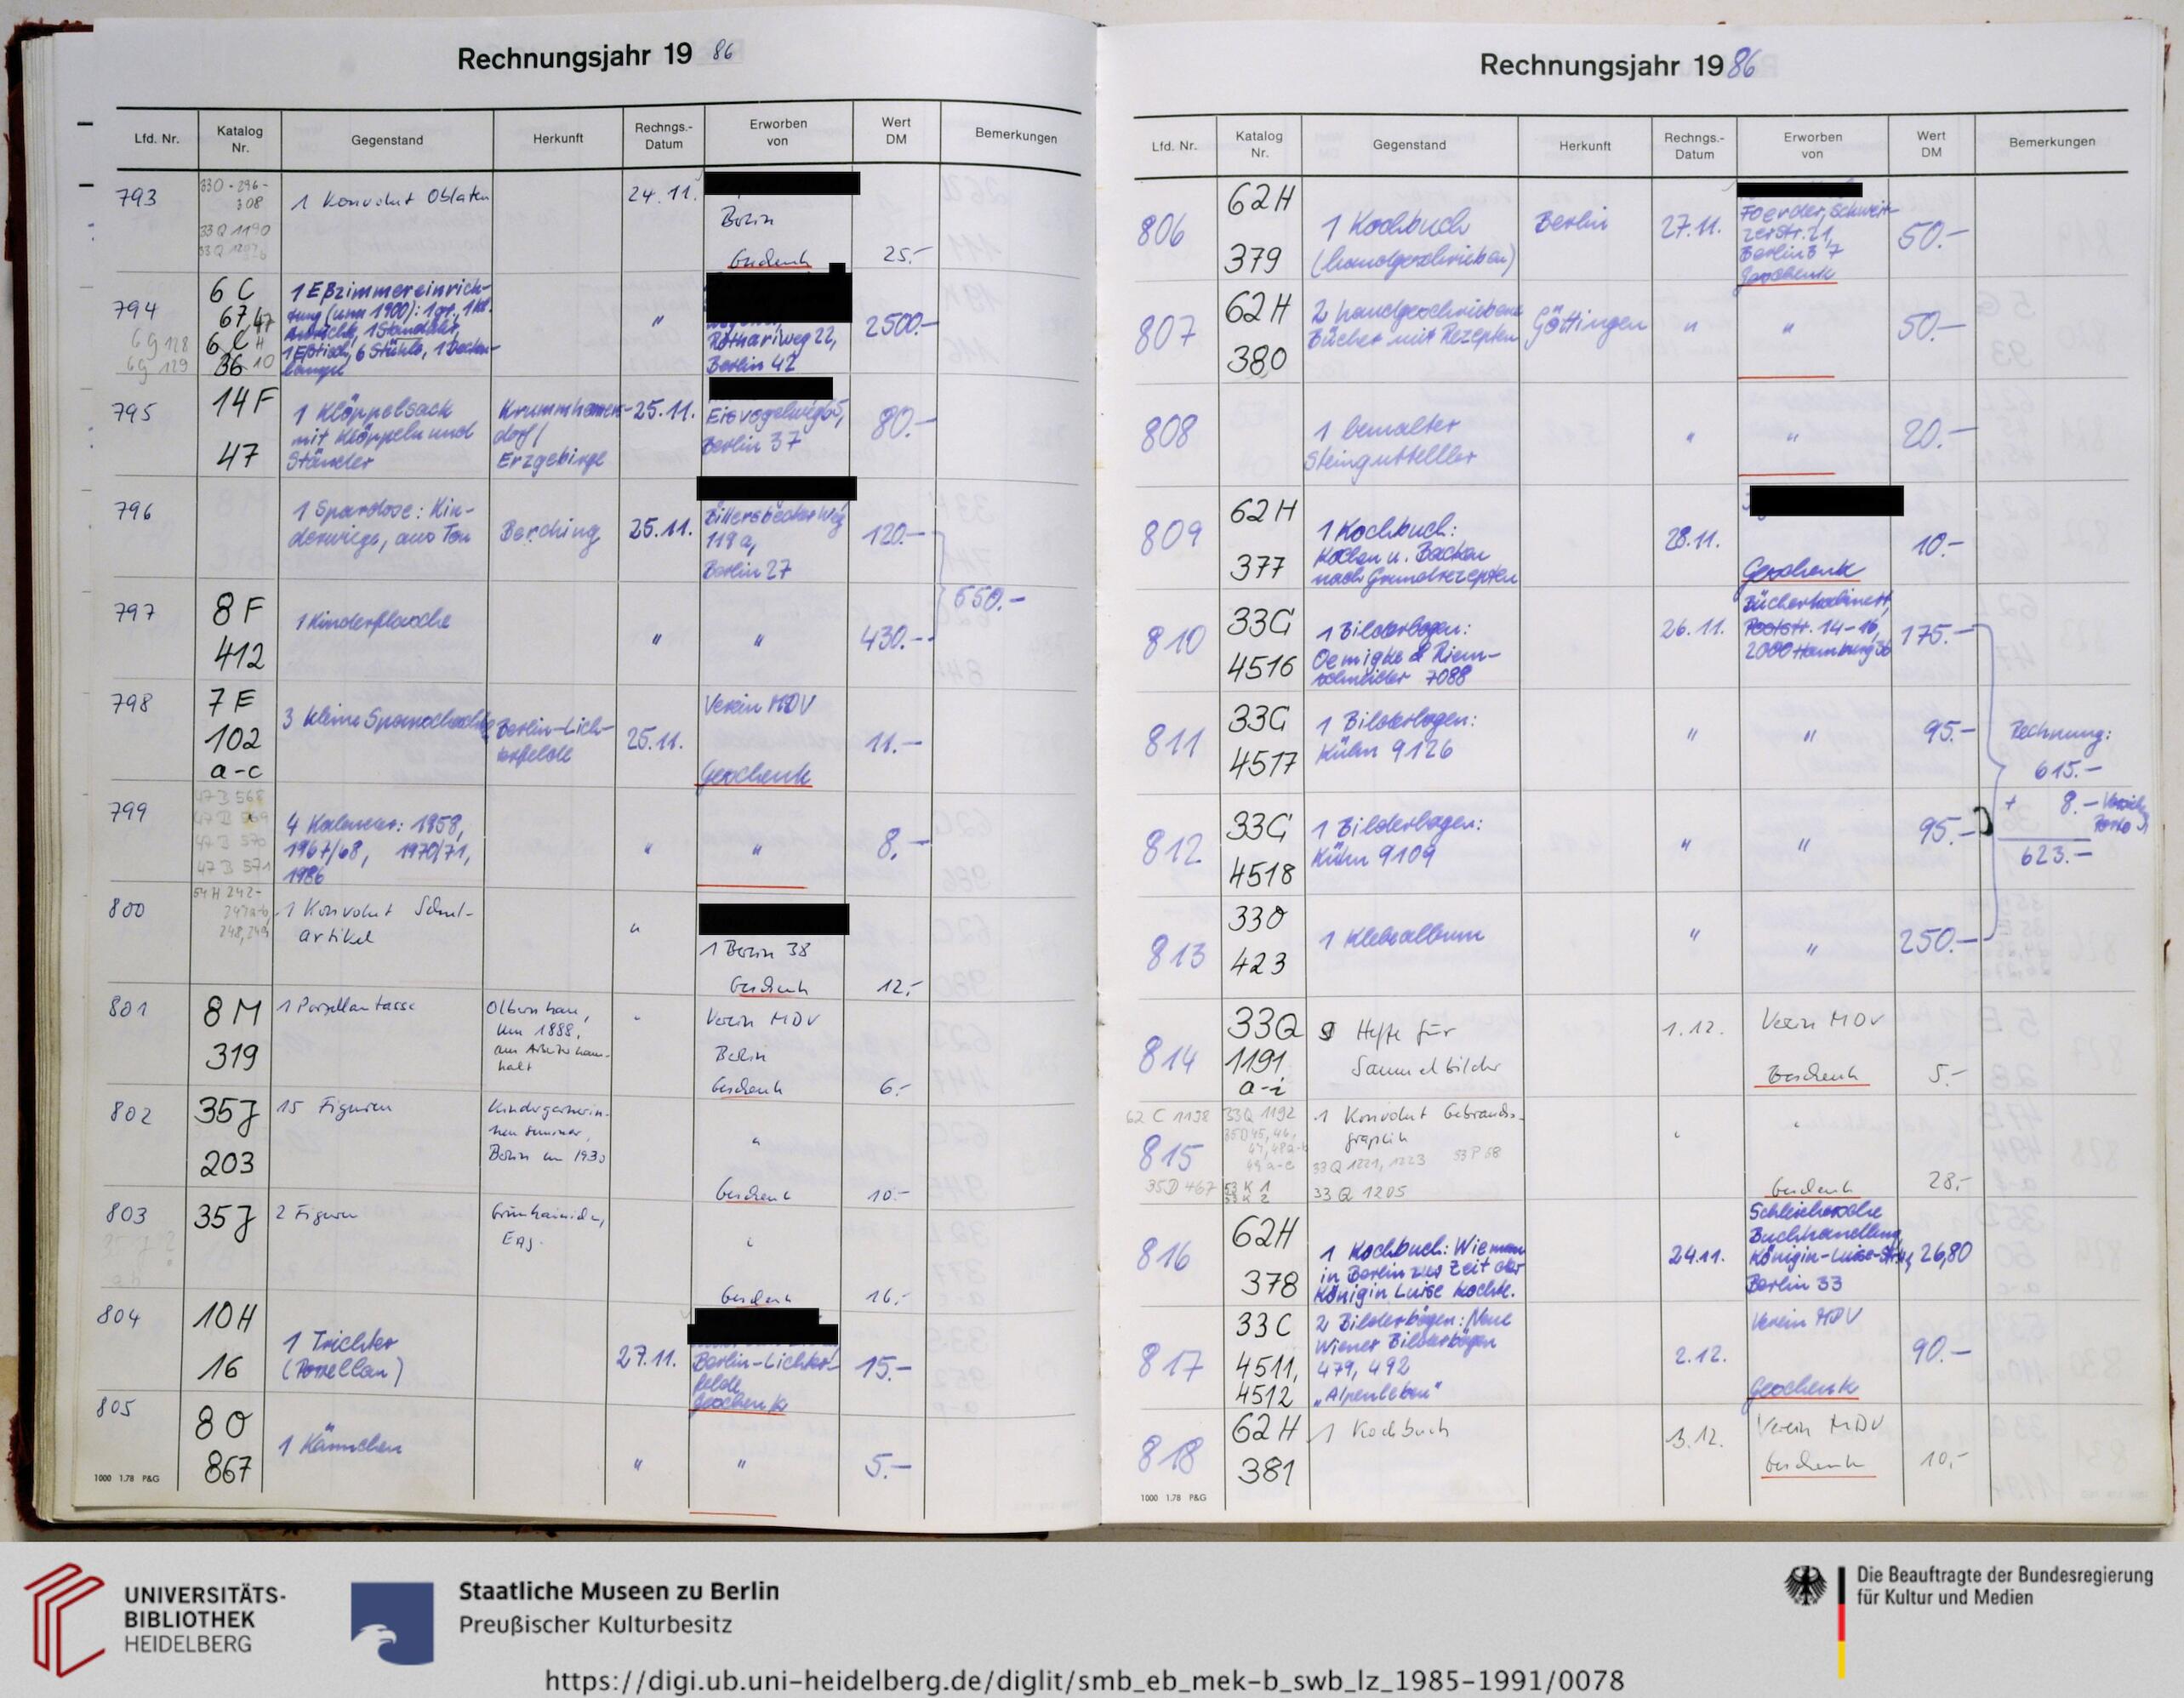 Rechnungsjahr 19 86
Lfd. Nr. Katalog Nr. Gegenstand Herkunft Rechngs.-Datum Erworben von Wert DM Bemerkungen
793 330-296-308 1 Konvolut Oblaten 24.11.
33Q 1190 Berlin
Geschenk 25.-
794 6 C 1 Eßzimmereinrich-
67,47 tung (um 1900): 1 gr., 1 kl. " 2500.-
6g 128 6 C 1 Standuhr, Rothariweg 22,
6g 129 36 10 1 Eßtisch, 6 Stühle, 1 Decken- Berlin 42
795 14 F 1 Klöppelsack 25.11. Eisvogelweg 65, 80.-
mit Klöppeln und dorf/ Berlin 37
47 Ständer Erzgebirge
796 1 Spardose: Kin- Berching 25.11. 120.-
derwiege, aus Ton 119a,
Berlin 27
797 8 F 1 Kinderflasche " " 430.- 550.-
412
798 7 E 3 kleine Berlin-Lich- 25.11. Verein MDV 11.-
102 terfelde
a-c Geschenk
799 47 B 568
47 B 569 4 Kalender: 1958,
47 B 570 1967/68, 1970/71, " " 8.-
47 B 571 1986
800 54 H 242- 1 Konvolut Schul- "
248, 249 artikel
1 Berlin 38
Geschenk 12.-
801 8 M 1 Porzellantasse Olbernhau, " Verein MDV
319 um 1888, Berlin
aus Arbeiterhaus-
halt Geschenk 6.-
802 35 J 15 Figuren Kindergärtnerin-
203 nen Seminar, "
Berlin um 1930
Geschenk 10.-
803 35 J 2 Figuren Grünhainichen, "
Erzg.
Geschenk 16.-
804 10 H 1 Trichter 27.11. Berlin-Lichter- 15.-
16 (Porzellan) felde
Geschenk
805 8 O 1 Kännchen " " 5.-
867
1000 1.78 P&G
Rechnungsjahr 19 86
Lfd. Nr. Katalog Nr. Gegenstand Herkunft Rechngs.-Datum Erworben von Wert DM Bemerkungen
806 62 H 1 Kochbuch Berlin 27.11. Foerder, Schweit- 50.-
379 (handgeschrieben) zerstr. 21,
Berlin 37
Geschenk
807 62 H 2 handgeschriebene Göttingen " " 50.-
380 Bücher mit Rezepten
808 1 bemalter " " 20.-
Steingutteller
809 62 H 1 Kochbuch: 28.11. 10.-
377 Kochen u. Backen
nach Grundrezepten Geschenk
810 33 G 1 Bilderbogen: 26.11. Bücherkabinett, 175.-
4516 Oemigke & Riem- Poststr. 14-16,
schneider 7088 2000 Hamburg 36
811 33 G 1 Bilderbogen: " " 95.- Rechnung:
4517 Kühn 9126 615.-
812 33 G 1 Bilderbogen: " " 95.- + 8.- Porto
4518 Kühn 9109 623.-
813 330 1 Klebealbum " " 250.-
423
814 33 Q 9 Hefte für 1.12. Verein MDV
1191 Sammelbilder
a-i Geschenk 5.-
62 C 1138 33 Q 1192 1 Konvolut Gebrauchs-
815 35 D 45, 46, graphik " "
33 Q 1221, 1223 33 P 68
35 D 467 53 K 1 33 Q 1205 Geschenk 28.-
53 K 2
816 62 H 1 Kochbuch: Wie man 24.11. Schleichersche
378 in Berlin zur Zeit der Buchhandlung
Königin Luise kochte. Königin-Luise-Str. 26,80
Berlin 33
817 33 C 2 Bilderbögen: Neue 2.12. Verein MDV 90.-
4511, Wiener Bilderbögen
4512 479, 492
„Alpenleben" Geschenk
818 62 H 1 Kochbuch 3.12. Verein MDV
381 Geschenk 10,-
1000 1.78 P&G
UNIVERSITÄTS-
BIBLIOTHEK
HEIDELBERG
Staatliche Museen zu Berlin
Preußischer Kulturbesitz
Die Beauftragte der Bundesregierung
für Kultur und Medien
https://digi.ub.uni-heidelberg.de/diglit/smb_eb_mek-b_swb_lz_1985-1991/0078